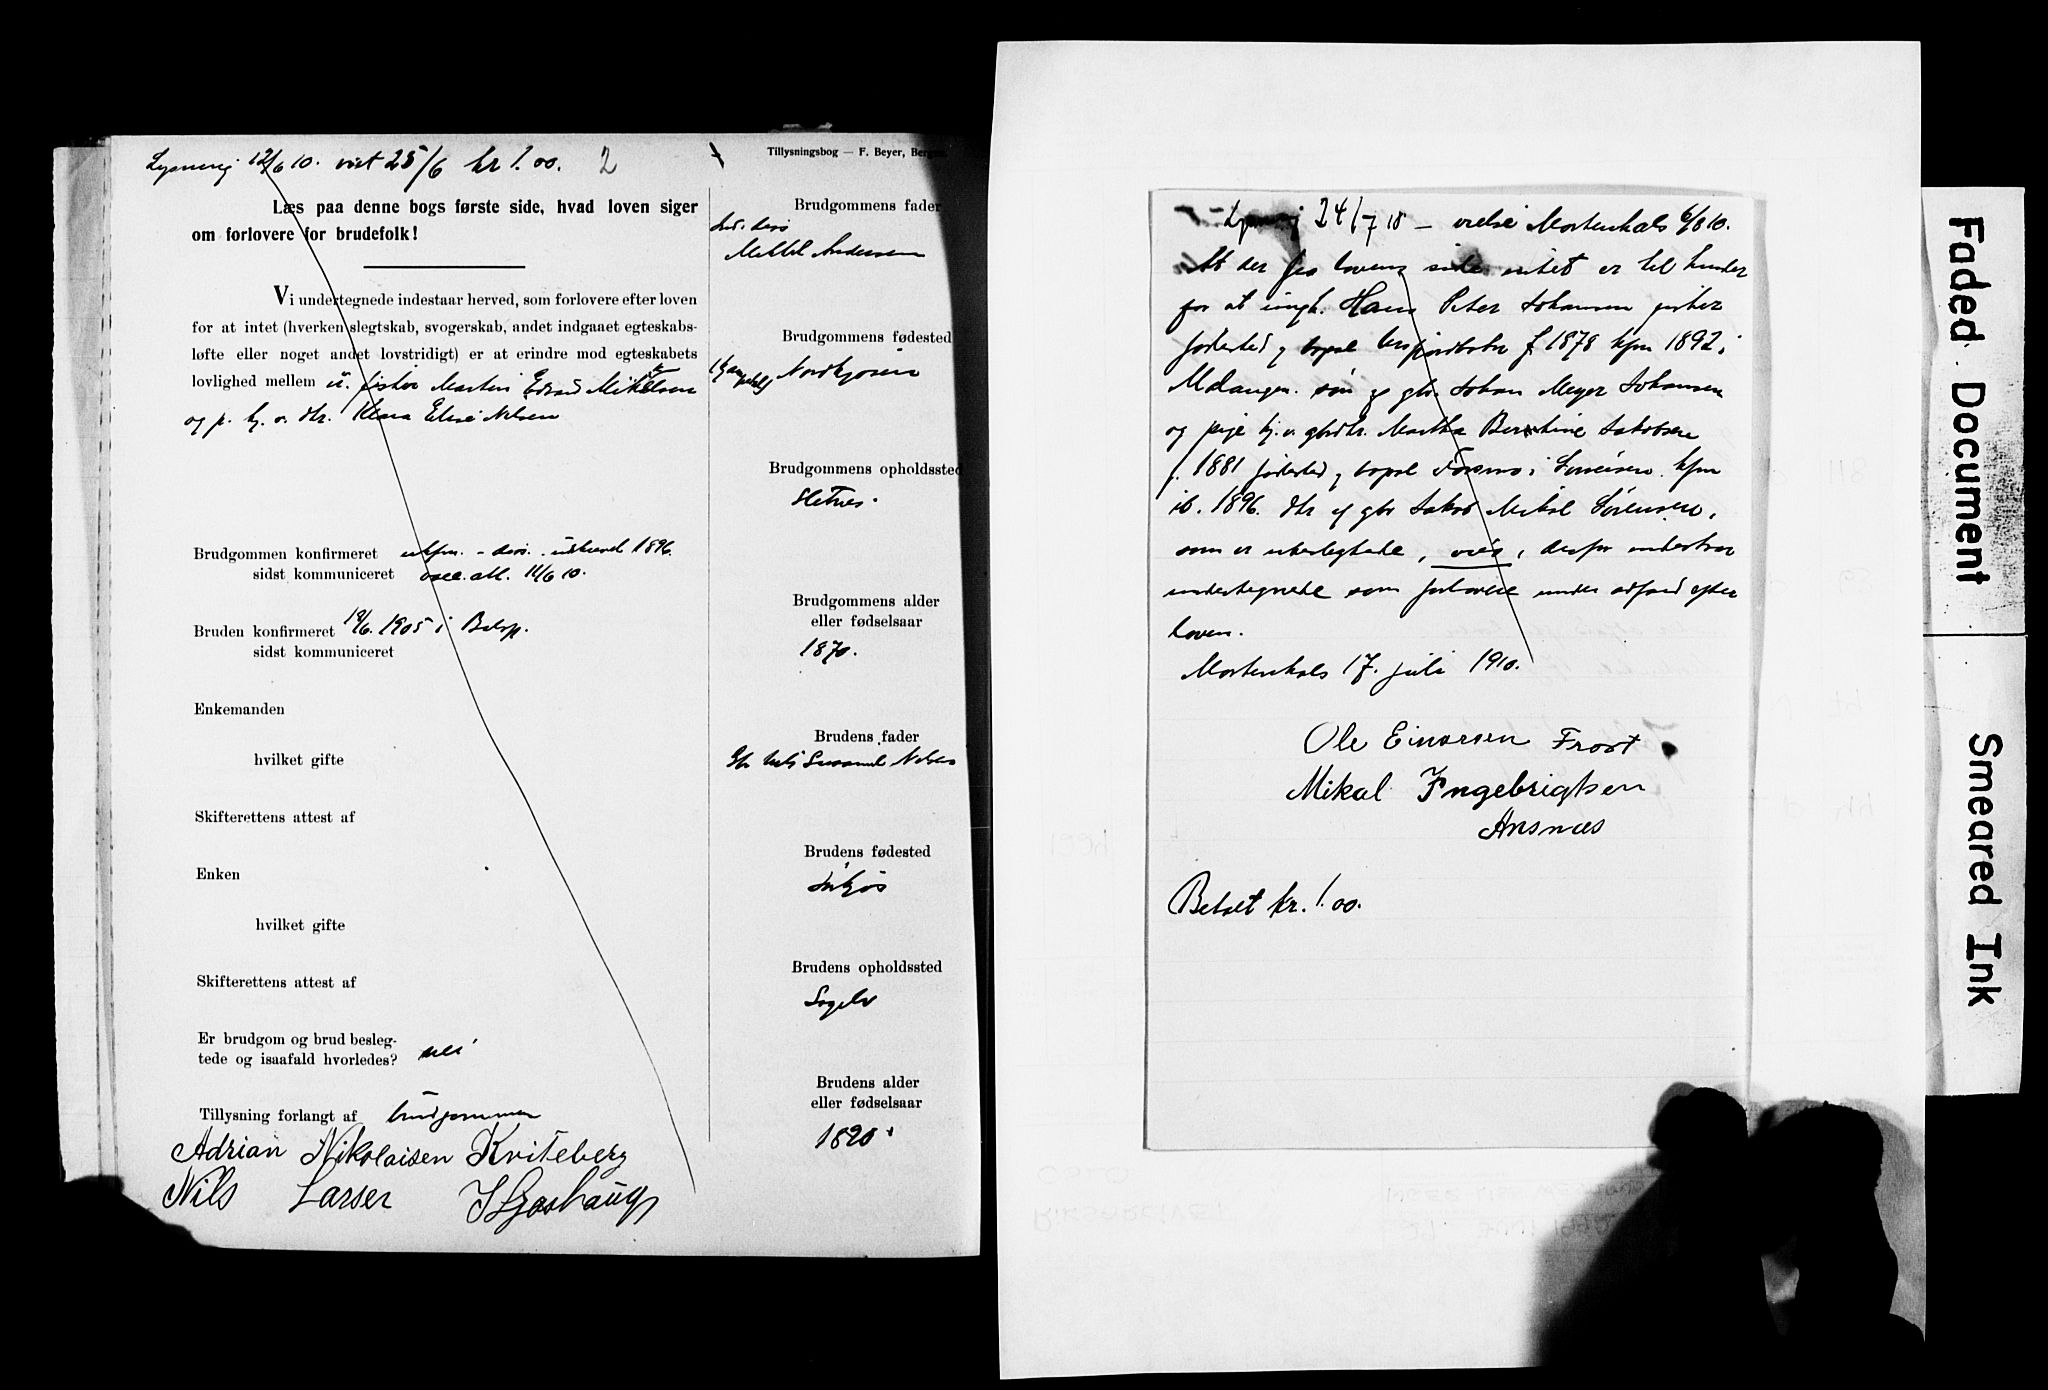 Lysning 12/6 10. viet 25/6 kr 1.00. 2
Tillysningsbog — F. Beyer, Bergen
Læs paa denne bogs første side, hvad loven siger
om forlovere for brudefolk!
Vi undertegnede indestaar herved, som forlovere efter loven
for at intet (hverken slegtskab, svogerskab, andet indgaaet egteskabs-
løfte eller noget andet lovstridigt) er at erindre mod egteskabets
lovlighed mellem u. fisker Martin Edvard Mikkelsen
og p. hj. v. dtr. Elise Nilsen
Brudgommen konfirmeret ukfm. - diss. udskrevet 1896.
sidst kommuniceret vacc. att. 11/6 10.
Bruden konfirmeret 18/6. 1905 i Balsfj.
sidst kommuniceret
Enkemanden
hvilket gifte
Skifterettens attest af
Enken
hvilket gifte
Skifterettens attest af
Er brudgom og brud besleg-
tede og isaafald hvorledes? nei
Tillysning forlangt af brudgommen
Adrian Nikolaisen Kviteberg
Nils Larsen
Brudgommens fader
Mikkel Andersen
Brudgommens fødested
Nordkjosen
Brudgommens opholdssted
Sletnes.
Brudgommens alder
eller fødselsaar
1870.
Brudens fader
Nilsen
Brudens fødested
Brudens opholdssted
Sagelv
Brudens alder
eller fødselsaar
1890
Lysning 24/7 10 — vielse Mortenhals 6/8 10.
At der fra lovens side intet er til hinder
for at ungk. Hans Peter Johansen fisker
fødested og bopæl f. 1878 kfm 1892 i
Malangen. søn af gbr. Johan Meyer Johansen
og pige hj. v. gbrdtr. Martha Berntine Jakobsen
f. 1881 fødested og bopæl i kfm
ib. 1896. dtr af gbr Jakob Mikal Sørensen,
som er ubeslegtede, vies, derfor indestaar
undertegnede som forlovere under ansvar efter
loven.
Mortenhals 17. juli 1910.
Ole Einarsen Frost
Mikal Ingebrigtsen
Ansnæs
Betalt kr. 1.00.
Faded Document
Smeared Ink